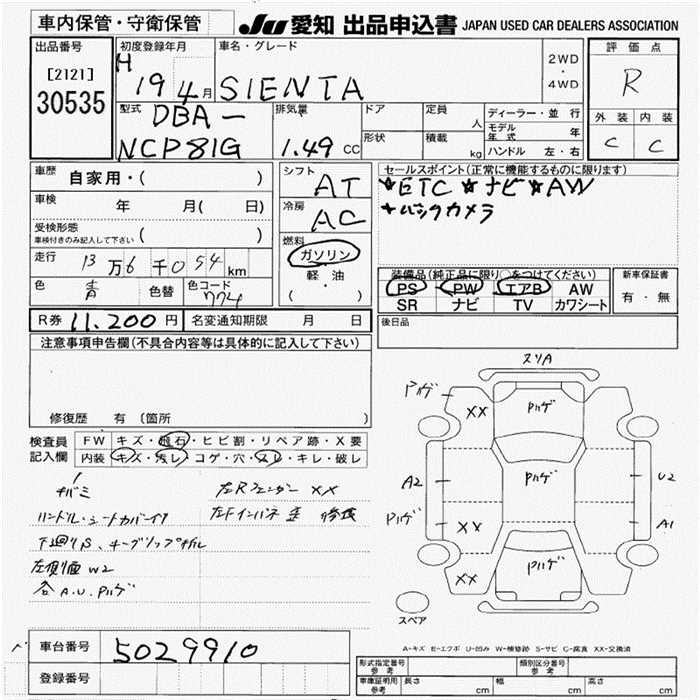 車内保管・守衛保管 JU 愛知 出品申込書 JAPAN USED CAR DEALERS ASSOCIATION
出品番号 初度登録年月 車名・グレード 2WD・4WD 評価点
[2121] 30535 H 19年 4月 SIENTA R
型式 DBA- NCP81G 排気量 1.49 CC ドア 定員 人 ディーラー・並行
形状 積載 kg モデル年式 年 外装 内装
ハンドル 左・右 C C
車歴 自家用・( ) シフト AT セールスポイント(正常に機能するものに限ります)
車検 年 月( 日) 冷房 AC ★ETC ★ナビ ★AW
受検形態 車検付きのみ記入して下さい ( ) 燃料 ガソリン ★バックカメラ
走行 13万6千054km 軽・油 ( )
色 青 色替 色コード 774
装備品(純正品に限り○をつけてください) 新車保証書
PS PW エアB AW 有・無
SR ナビ TV カワシート
R券 11,200円 名変通知期限 月 日 後日品
注意事項申告欄(不具合内容等は具体的に記入して下さい)
修復歴 有 〔箇所 〕
検査員記入欄 FW キズ・飛石・ヒビ割・リペア跡・X要
内装 キズ・汚レ・コゲ・穴・スレ・キレ・破レ
ハンドル・シートカバーイタ
下廻りS、キーグリップチヂル
左側面 W2
各A.U.Pハゲ
左Rフェンダー XX
左Fインパネ 歪 修復
スリA
Pハゲ XX Pハゲ
A2 Pハゲ U2
Pハゲ XX A1
XX Pハゲ
スペア
A-キズ E-エクボ U-凹み W-補修跡 S-サビ C-腐食 XX-交換済
車台番号 5029910
登録番号
形式指定番号 参考 類別区分番号 参考
車庫証明用 参考 長さ cm 幅 cm 高さ cm